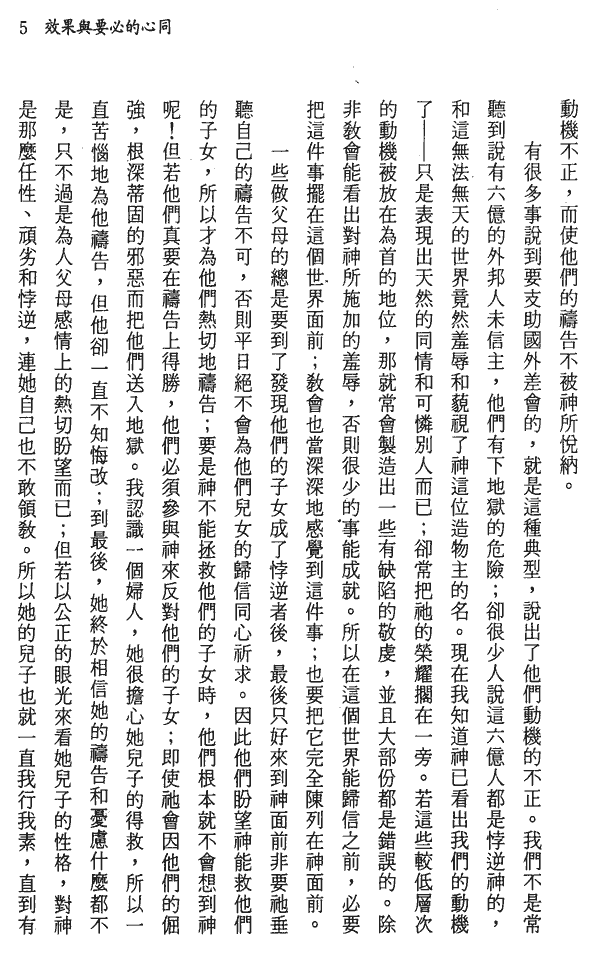 5　效果與要必的心同
動機不正，而使他們的禱告不被神所悅納。
有很多事說到要支助國外差會的，就是這種典型，說出了他們動機的不正。我們不是常
聽到說有六億的外邦人未信主，他們有下地獄的危險；卻很少人說這六億人都是悖逆神的，
和這無法無天的世界竟然羞辱和藐視了神這位造物主的名。現在我知道神已看出我們的動機
了——只是表現出天然的同情和可憐別人而已；卻常把祂的榮耀擱在一旁。若這些較低層次
的動機被放在為首的地位，那就常會製造出一些有缺陷的敬虔，並且大部份都是錯誤的。除
非教會能看出對神所施加的羞辱，否則很少的事能成就。所以在這個世界能歸信之前，必要
把這件事擺在這個世界面前；教會也當深深地感覺到這件事；也要把它完全陳列在神面前。
一些做父母的總是要到了發現他們的子女成了悖逆者後，最後只好來到神面前非要祂垂
聽自己的禱告不可，否則平日絕不會為他們兒女的歸信同心祈求。因此他們盼望神能救他們
的子女，所以才為他們熱切地禱告；要是神不能拯救他們的子女時，他們根本就不會想到神
呢！但若他們真要在禱告上得勝，他們必須參與神來反對他們的子女；即使祂會因他們的倔
強，根深蒂固的邪惡而把他們送入地獄。我認識一個婦人，她很擔心她兒子的得救，所以一
直苦惱地為他禱告，但他卻一直不知悔改；到最後，她終於相信她的禱告和憂慮什麼都不
是，只不過是為人父母感情上的熱切盼望而已；但若以公正的眼光來看她兒子的性格，對神
是那麼任性、頑劣和悖逆，連她自己也不敢領教。所以她的兒子也就一直我行我素，直到有